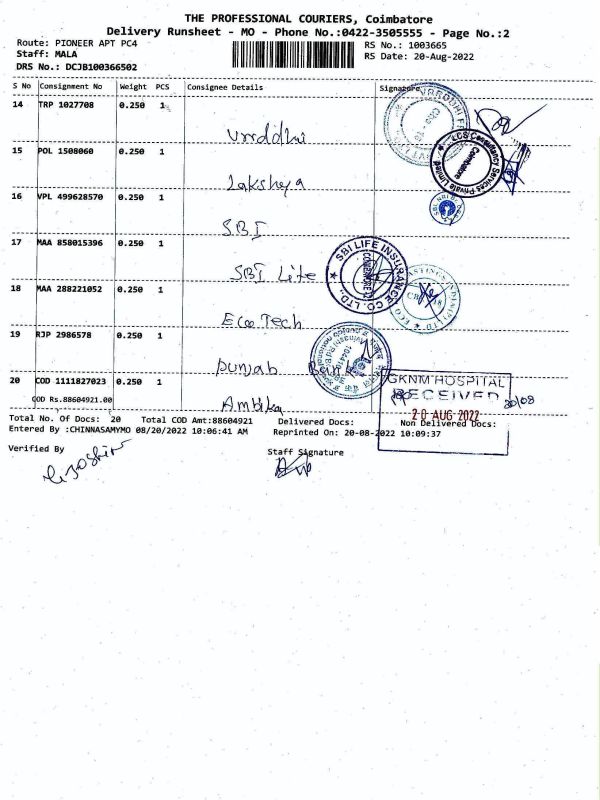 THE PROFESSIONAL COURIERS, Coimbatore
Delivery Runsheet - MO - Phone No.:0422-3505555 - Page No.:2
Route: PIONEER APT PC4
RS No.: 1003665
Staff: MALA
RS Date: 20-Aug-2022
DRS No.: DCJB100366502
S No Consignment No Weight PCS Consignee Details Signature
14 TRP 1027708 0.250 1
Vrddhi
15 POL 1508060 0.250 1
Lakshya
16 VPL 499628570 0.250 1
SBI
17 MAA 858015396 0.250 1
SBI Life
18 MAA 288221052 0.250 1
Eco Tech
19 RJP 2986578 0.250 1
Punjab Bank
20 COD 1111827023 0.250 1
COD Rs.88604921.00
Ambika
LCS Consultancy Services Private Limited
Coimbatore
SBI LIFE INSURANCE CO. LTD.
GKNM HOSPITAL
RECEIVED
20/08
20 AUG 2022
Total No. Of Docs: 20 Total COD Amt:88604921 Delivered Docs: Non Delivered Docs:
Entered By :CHINNASAMYMO 08/20/2022 10:06:41 AM Reprinted On: 20-08-2022 10:09:37
Verified By
Staff Signature